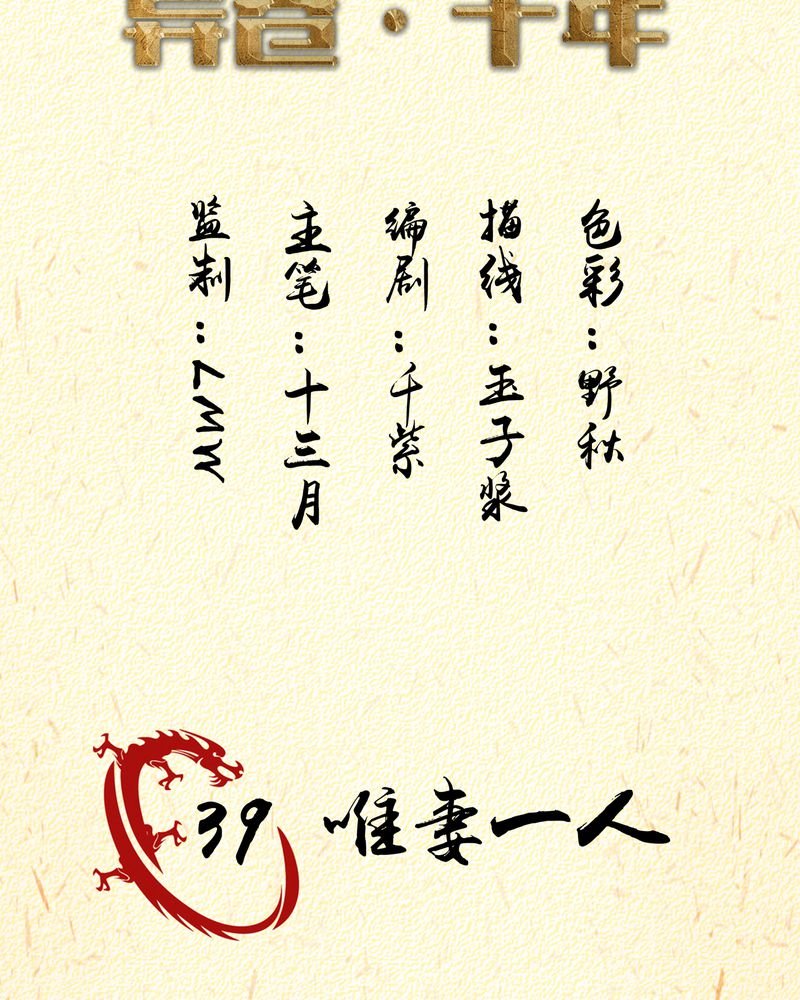 监制：
主笔：十三月
编剧：千紫
描线：玉子浆
色彩：野秋
39 唯妻一人